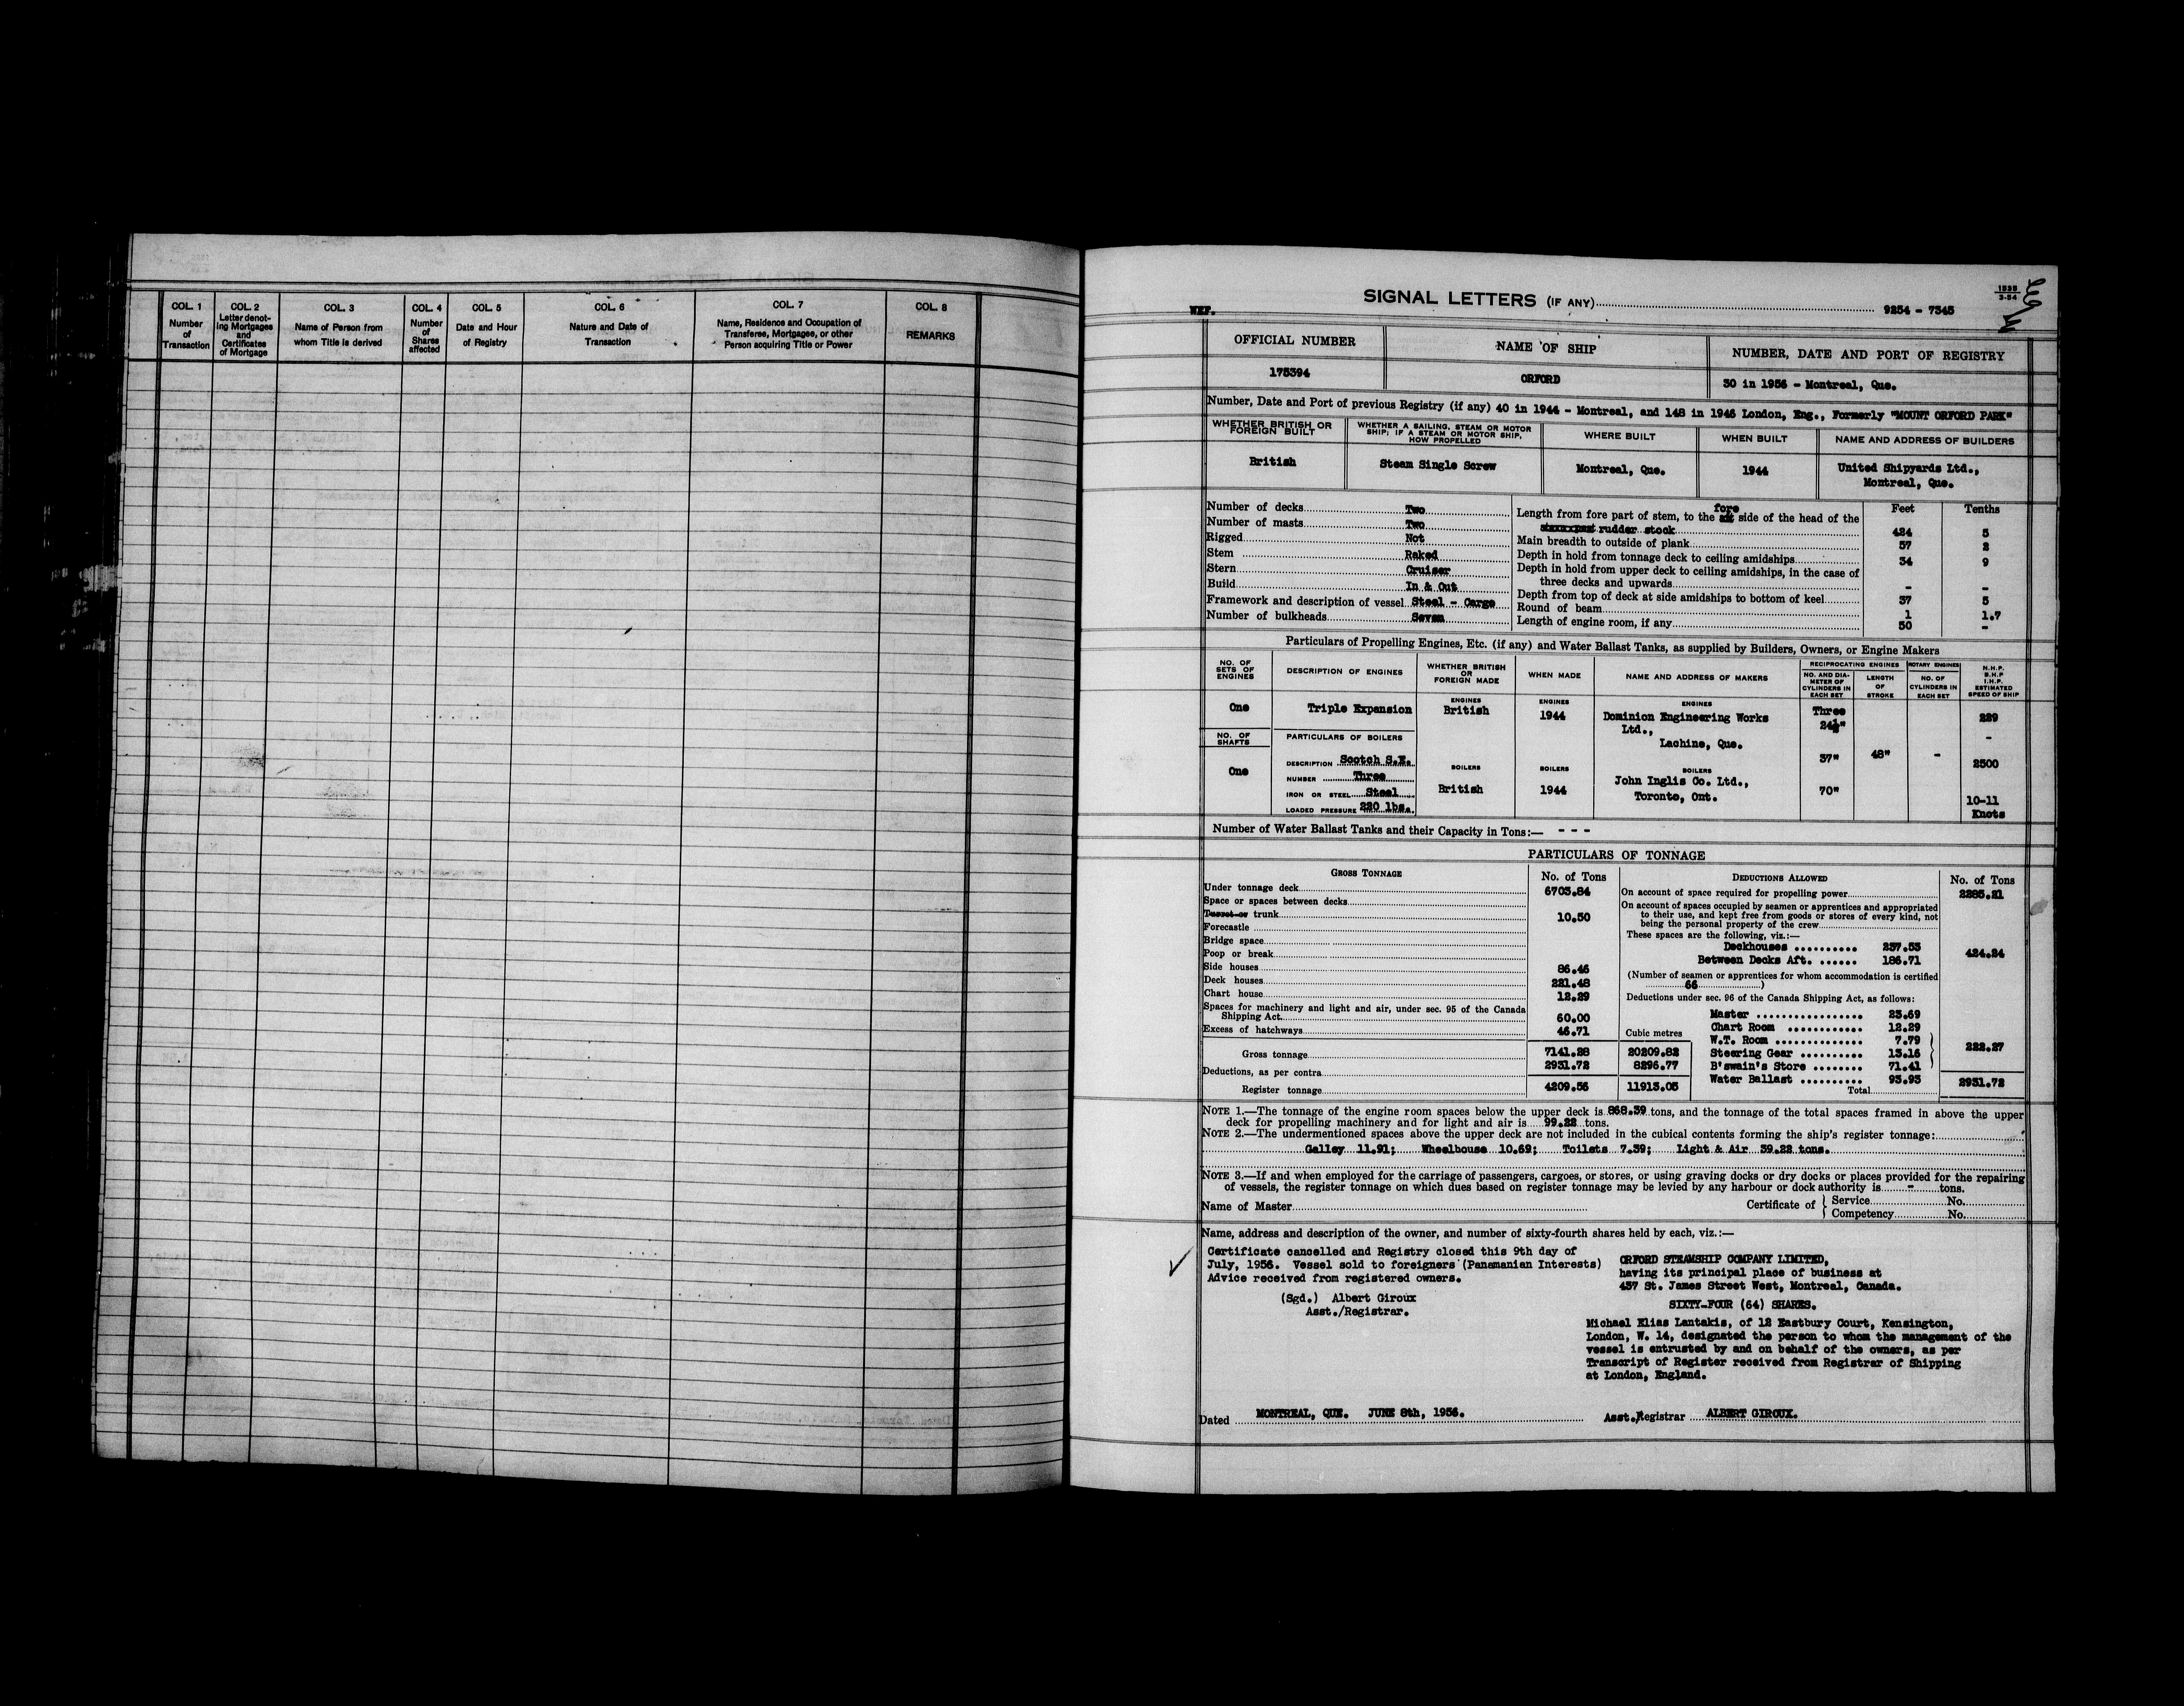 COL. 1
Number
of
Transaction
COL. 2
Letter denot-
ing Mortgages
and
Certificates
of Mortgage
COL. 3
Name of Person from
whom Title is derived
COL. 4
Number
of
Shares
affected
COL. 5
Date and Hour
of Registry
COL. 6
Nature and Date of
Transaction
COL. 7
Name, Residence and Occupation of
Transferee, Mortgagee, or other
Person acquiring Title or Power
COL. 8
REMARKS
SIGNAL LETTERS (IF ANY) 9254 - 7345
WEF.
OFFICIAL NUMBER NAME OF SHIP NUMBER, DATE AND PORT OF REGISTRY
175394 ORFORD 30 in 1956 - Montreal, Que.
Number, Date and Port of previous Registry (if any) 40 in 1944 - Montreal, and 148 in 1946 London, Eng., Formerly "MOUNT ORFORD PARK"
WHETHER BRITISH OR
FOREIGN BUILT
WHETHER A SAILING, STEAM OR MOTOR
SHIP; IF A STEAM OR MOTOR SHIP,
HOW PROPELLED
WHERE BUILT WHEN BUILT NAME AND ADDRESS OF BUILDERS
British Steam Single Screw Montreal, Que. 1944 United Shipyards Ltd.,
Montreal, Que.
Number of decks Two
Number of masts Two
Rigged Not
Stem Raked
Stern Cruiser
Build In & Out
Framework and description of vessel Steel - Cargo
Number of bulkheads Seven
Feet Tenths
Length from fore part of stem, to the fore side of the head of the
rudder stock 424 5
Main breadth to outside of plank 57 2
Depth in hold from tonnage deck to ceiling amidships 34 9
Depth in hold from upper deck to ceiling amidships, in the case of
three decks and upwards - -
Depth from top of deck at side amidships to bottom of keel 37 5
Round of beam 1 1.7
Length of engine room, if any 50 -
Particulars of Propelling Engines, Etc. (if any) and Water Ballast Tanks, as supplied by Builders, Owners, or Engine Makers
NO. OF
SETS OF
ENGINES
DESCRIPTION OF ENGINES
WHETHER BRITISH
OR
FOREIGN MADE
WHEN MADE
NAME AND ADDRESS OF MAKERS
RECIPROCATING ENGINES
NO. AND DIA-
METER OF
CYLINDERS IN
EACH SET
LENGTH
OF
STROKE
ROTARY ENGINES
NO. OF
CYLINDERS IN
EACH SET
N.H.P.
B.H.P
I.H.P.
ESTIMATED
SPEED OF SHIP
One Triple Expansion
ENGINES
British
ENGINES
1944
ENGINES
Dominion Engineering Works
Ltd.,
Lachine, Que.
Three
24½"
37"
70"
48"
-
229
-
2500
10-11
Knots
NO. OF
SHAFTS
One
PARTICULARS OF BOILERS
DESCRIPTION Scotch S.E.
NUMBER Three
IRON OR STEEL Steel
LOADED PRESSURE 220 lbs.
BOILERS
British
BOILERS
1944
BOILERS
John Inglis Co. Ltd.,
Toronto, Ont.
Number of Water Ballast Tanks and their Capacity in Tons:— - - -
PARTICULARS OF TONNAGE
GROSS TONNAGE No. of Tons
Under tonnage deck 6703.84
Space or spaces between decks
Turret or trunk 10.50
Forecastle
Bridge space
Poop or break
Side houses 86.46
Deck houses 221.48
Chart house 12.29
Spaces for machinery and light and air, under sec. 95 of the Canada
Shipping Act 60.00
Excess of hatchways 46.71
Cubic metres
Gross tonnage 7141.28 20209.82
Deductions, as per contra 2931.72 8296.77
Register tonnage 4209.56 11913.05
DEDUCTIONS ALLOWED No. of Tons
On account of space required for propelling power 2285.21
On account of spaces occupied by seamen or apprentices and appropriated
to their use, and kept free from goods or stores of every kind, not
being the personal property of the crew
These spaces are the following, viz.:—
Deckhouses .......... 237.53
Between Decks Aft. ...... 186.71
424.24
(Number of seamen or apprentices for whom accommodation is certified
66 )
Deductions under sec. 96 of the Canada Shipping Act, as follows:
Master ................ 23.69
Chart Room ............ 12.29
W.T. Room .............. 7.79
Steering Gear .......... 13.16
B'swain's Store ........ 71.41
Water Ballast .......... 93.93
222.27
Total 2931.72
NOTE 1.—The tonnage of the engine room spaces below the upper deck is 868.39 tons, and the tonnage of the total spaces framed in above the upper
deck for propelling machinery and for light and air is 99.22 tons.
NOTE 2.—The undermentioned spaces above the upper deck are not included in the cubical contents forming the ship's register tonnage:
Galley 11.91; Wheelhouse 10.69; Toilets 7.39; Light & Air 39.22 tons.
NOTE 3.—If and when employed for the carriage of passengers, cargoes, or stores, or using graving docks or dry docks or places provided for the repairing
of vessels, the register tonnage on which dues based on register tonnage may be levied by any harbour or dock authority is - tons.
Name of Master Certificate of Service No.
Competency No.
Name, address and description of the owner, and number of sixty-fourth shares held by each, viz.:—
Certificate cancelled and Registry closed this 9th day of
July, 1956. Vessel sold to foreigners (Panamanian Interests)
Advice received from registered owners.
(Sgd.) Albert Giroux
Asst./Registrar.
ORFORD STEAMSHIP COMPANY LIMITED,
having its principal place of business at
437 St. James Street West, Montreal, Canada.
SIXTY-FOUR (64) SHARES.
Michael Elias Lantakis, of 12 Eastbury Court, Kensington,
London, W. 14, designated the person to whom the management of the
vessel is entrusted by and on behalf of the owners, as per
Transcript of Register received from Registrar of Shipping
at London, England.
Dated MONTREAL, QUE. JUNE 8th, 1956. Asst./Registrar ALBERT GIROUX.